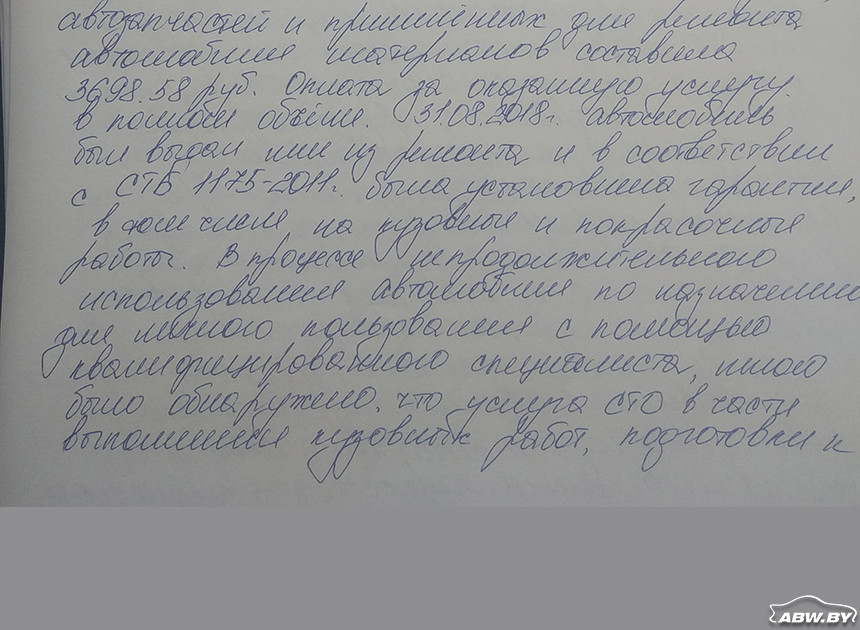 автозапчастей и применённых для ремонта
автомобиля материалов составила
3698.58 руб. Оплата за оказанную услугу
в полном объёме. 31.08.2018г. автомобиль
был выдан мне из ремонта и в соответствии
с СТБ 1175-2011г. была установлена гарантия,
в том числе на кузовные и покрасочные
работы. В процессе непродолжительного
использования автомобиля по назначению
для личного пользования с помощью
квалифицированного специалиста, мною
было обнаружено, что услуга СТО в части
выполнения кузовных работ, подготовки к
ABW.BY